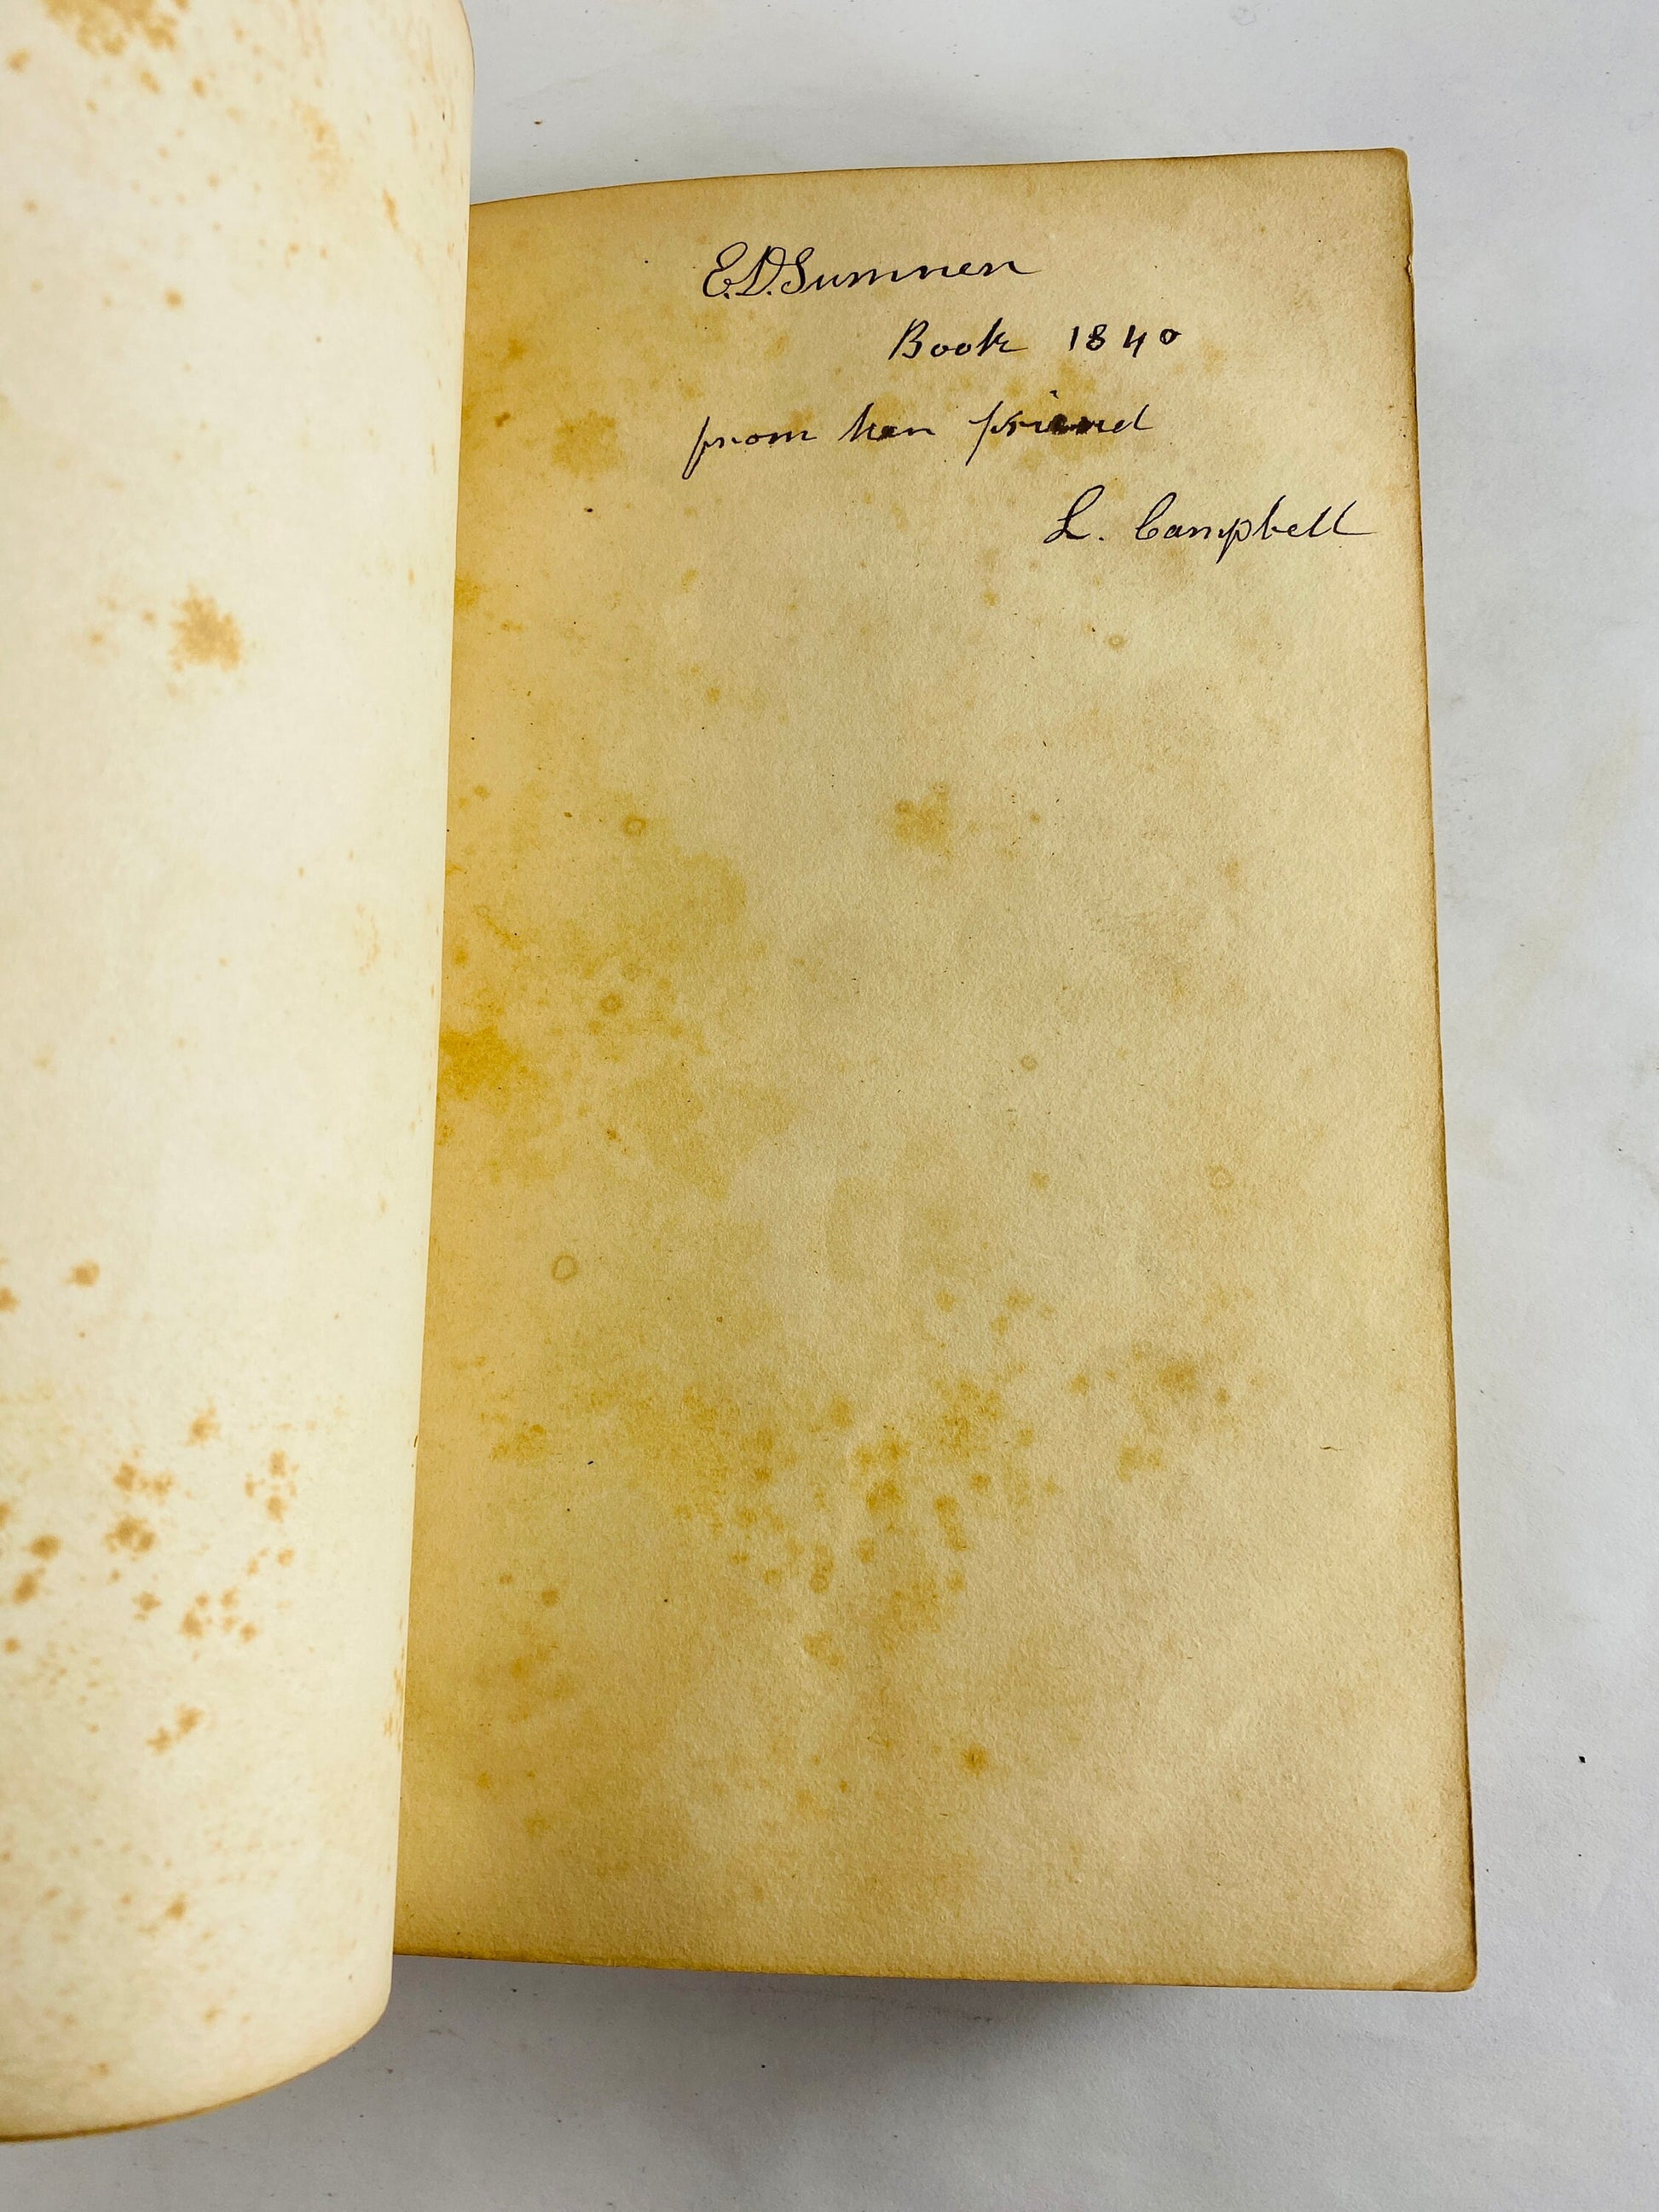 E.D. Sumner
Book 1840
from her friend
L. Campbell